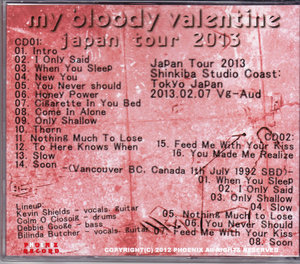 my bloody valentine
japan tour 2013
CD01:
01. Intro
02. I Only Said
03. When You Sleep
04. New You
05. You Never Should
06. Honey Power
07. Cigarette In You Bed
08. Come In Alone
09. Only Shallow
10. Thorn
11. Nothing Much To Lose
12. To Here Knows When
13. Slow
14. Soon
Japan Tour 2013
Shinkiba Studio Coast:
Tokyo Japan
2013.02.07 V6-Aud
CD02:
15. Feed Me With Your Kiss
16. You Made Me Realize
(Vancouver BC, Canada 1th July 1992 SBD)
01. When You Sleep
02. I Only Said
03. Only Shallow
04. Slow
05. Nothing Much to Lose
06. You Never Should
07. Feed Me With Your Kiss
08. Soon
Lineup:
Kevin Shields - vocals, guitar
Colm O Ciosoig - drums
Debbie Googe - bass
Bilinda Butcher - vocals, guitar
RECORD
COPYRIGHT(C) 2012 PHOENIX ALL RIGHTS RESERVED